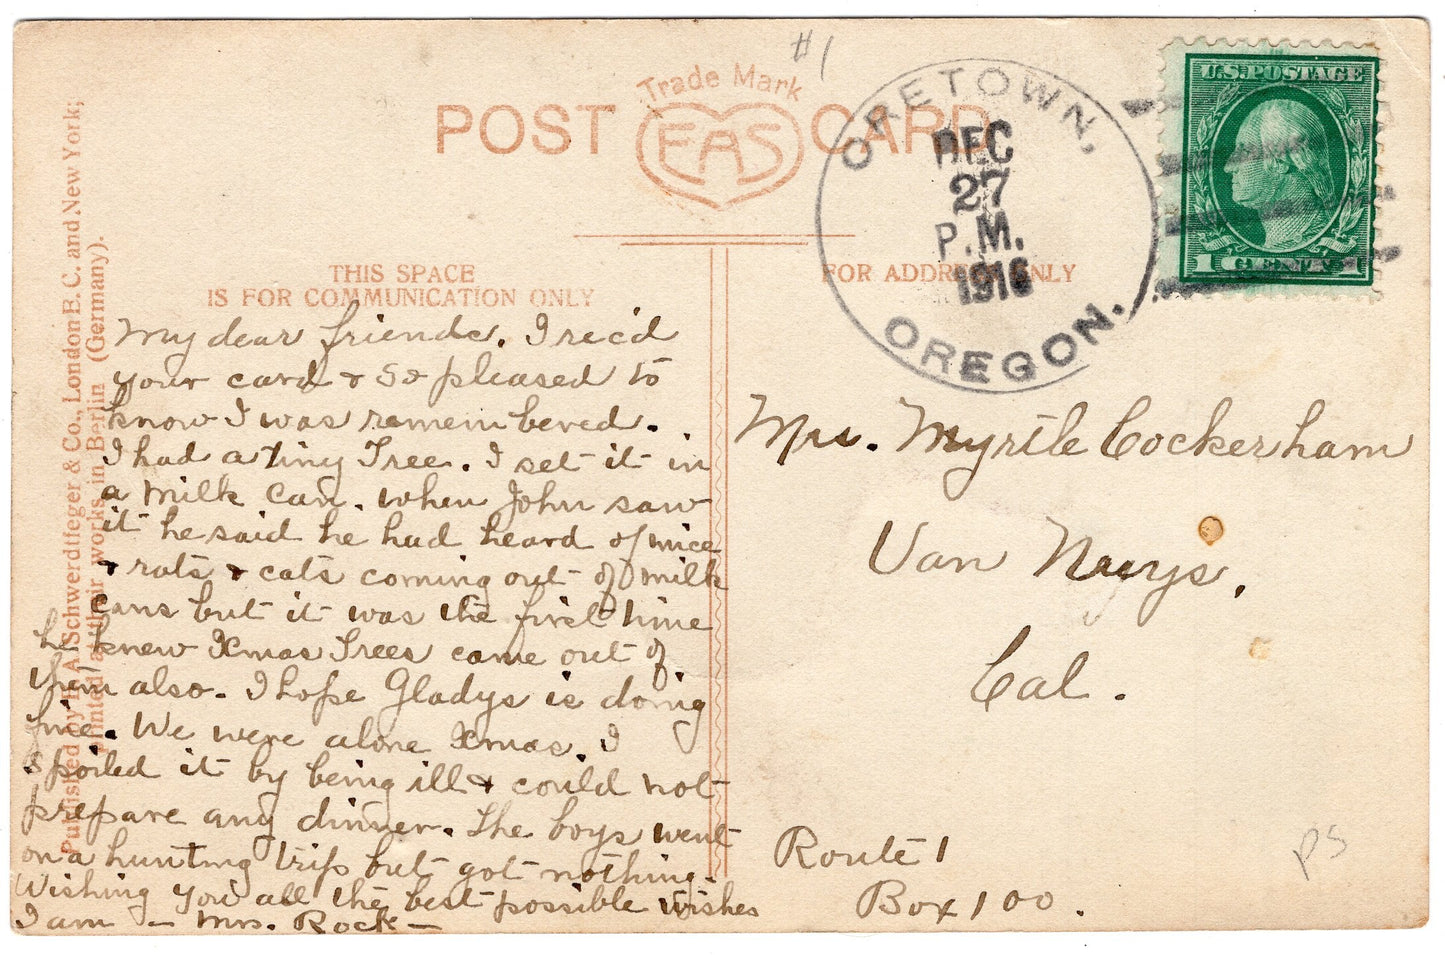 #1
POST CARD
Trade Mark
EAS
ORETOWN,
DEC
27
P.M.
1916
OREGON.
U.S. POSTAGE
1 CENT 1
THIS SPACE
IS FOR COMMUNICATION ONLY
FOR ADDRESS ONLY
Published by E. A. Schwerdtfeger & Co., London E. C. and New York;
printed at their works in Berlin (Germany).
My dear friends. I rec'd
your card & so pleased to
know I was remembered.
I had a tiny Tree. I set it in
a milk can. when John saw
it he said he had heard of mice
& rats & cats coming out of milk
cans but it was the first time
he knew Xmas Trees came out of
them also. I hope Gladys is doing
fine. We were alone Xmas. I
spoiled it by being ill & could not
prepare any dinner. The boys went
on a hunting trip but got nothing.
Wishing you all the best possible wishes
I am — Mrs. Rock —
Mrs. Myrtle Cockerham
Van Nuys,
Cal.
Route 1
Box 100.
PS